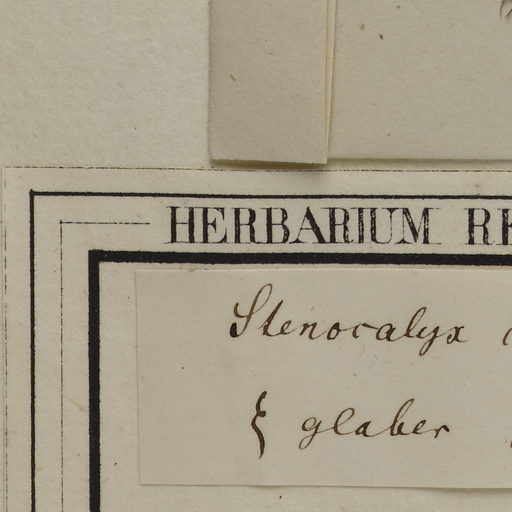 HERBARIUM
Stenocalyx
{ glaber